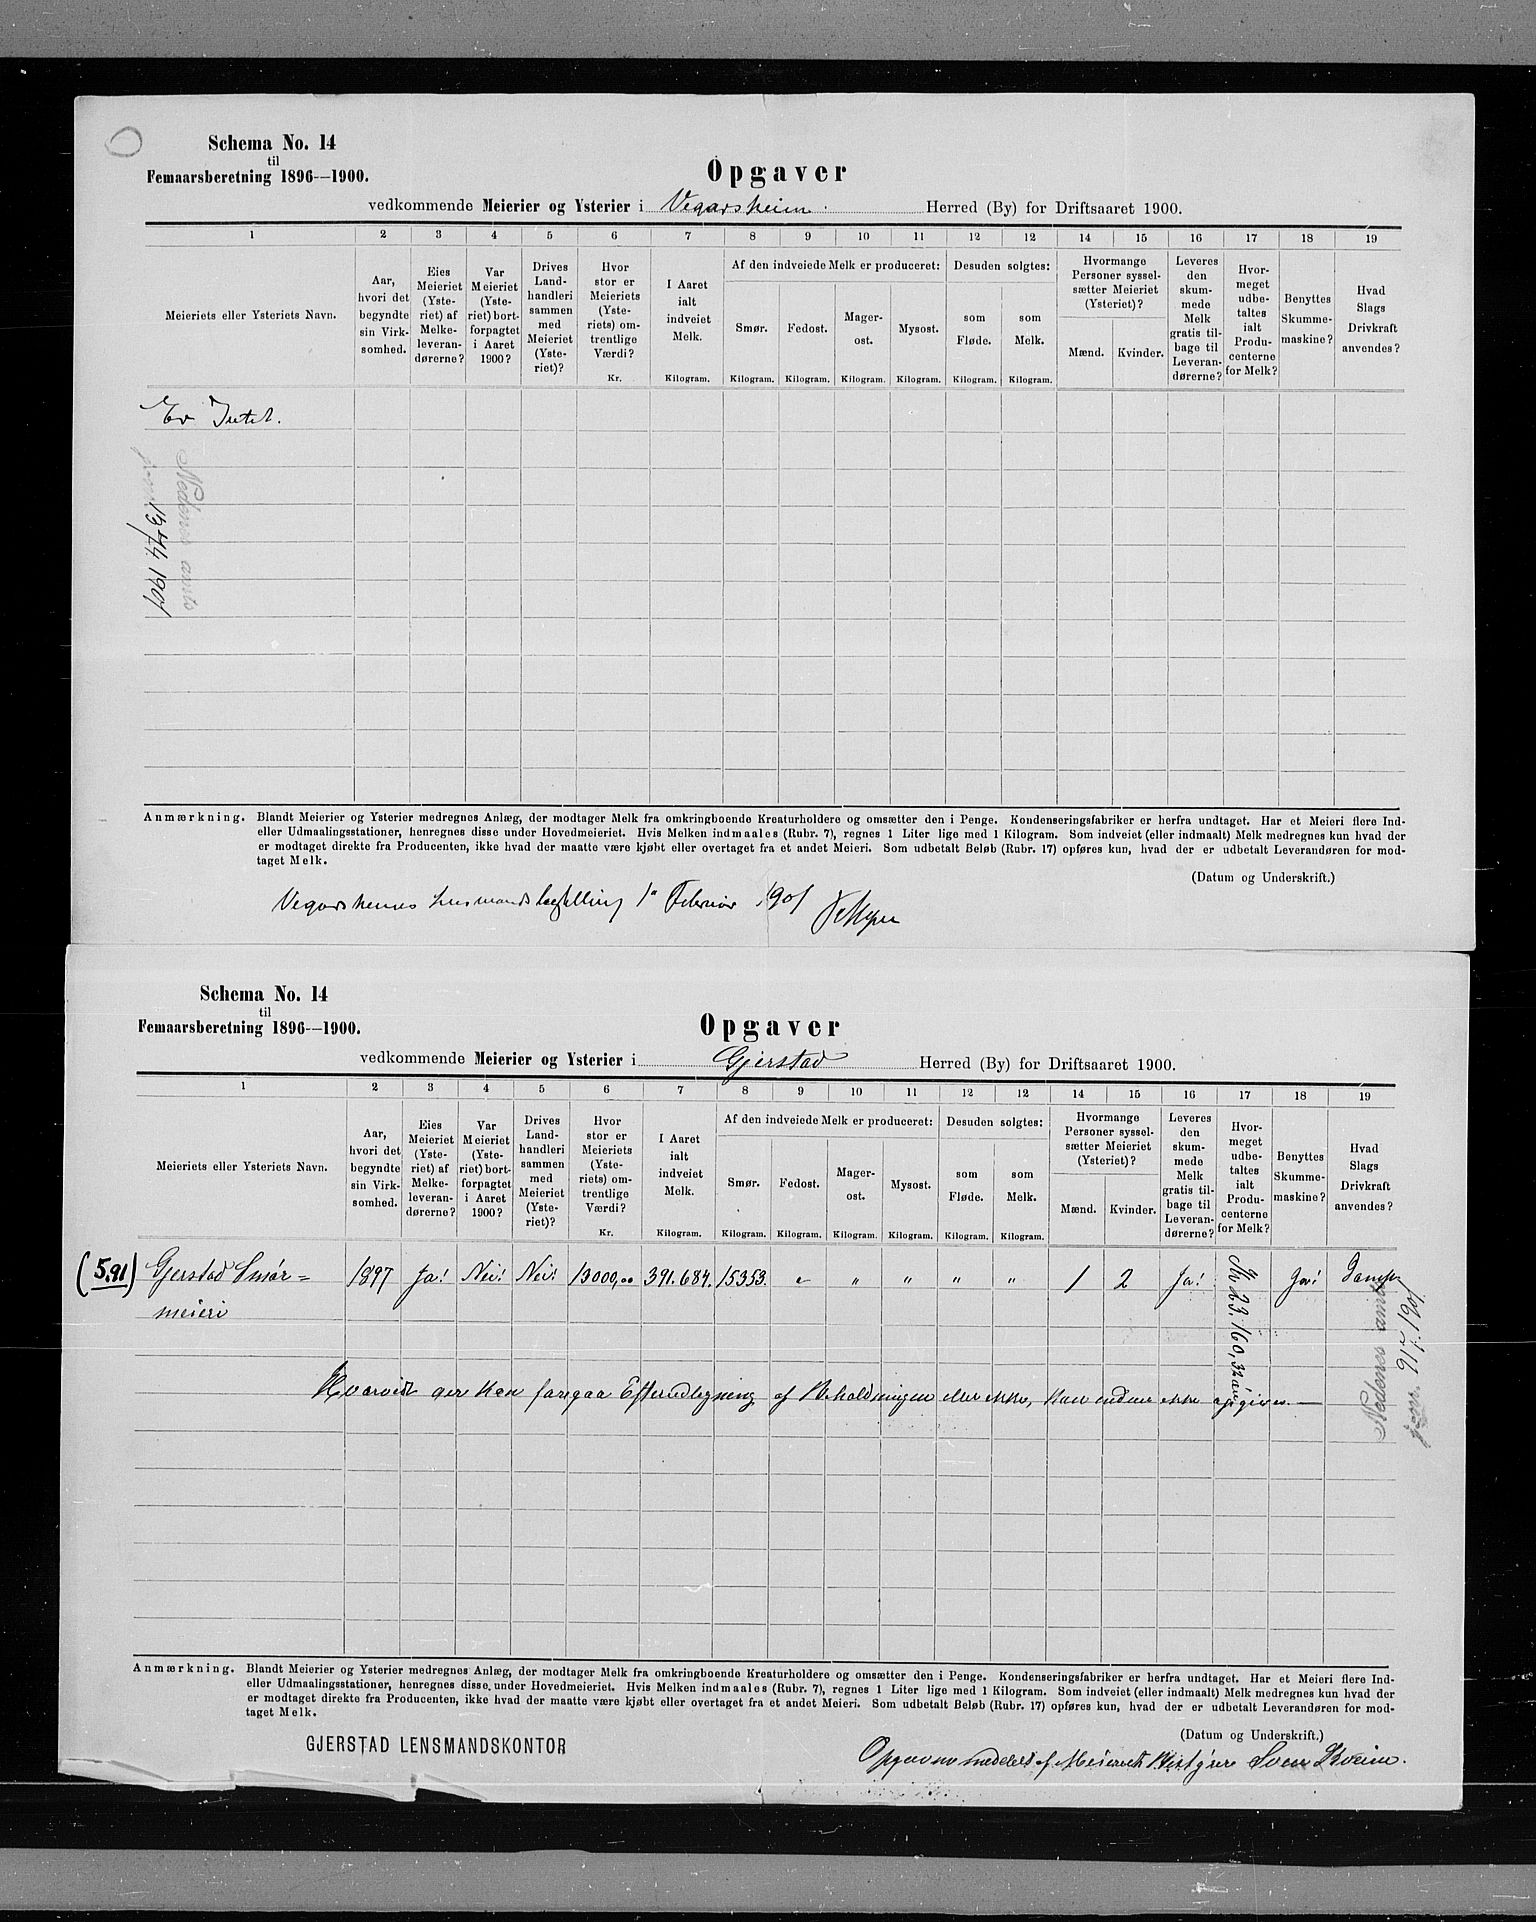 Schema No. 14
til
Femaarsberetning 1896—1900.
Opgaver
vedkommende Meierier og Ysterier i Vegarsheim Herred (By) for Driftsaaret 1900.
1 2 3 4 5 6 7 8 9 10 11 12 12 14 15 16 17 18 19
Meieriets eller Ysteriets Navn.
Aar, hvori det begyndte sin Virksomhed.
Eies Meieriet (Ysteriet) af Melkeleverandørerne?
Var Meieriet (Ysteriet) bortforpagtet i Aaret 1900?
Drives Landhandleri sammen med Meieriet (Ysteriet)?
Hvor stor er Meieriets (Ysteriets) omtrentlige Værdi? Kr.
I Aaret ialt indveiet Melk. Kilogram.
Af den indveiede Melk er produceret:
Smør. Kilogram.
Fedost. Kilogram.
Mager-ost. Kilogram.
Mysost. Kilogram.
Desuden solgtes:
som Fløde. Kilogram.
som Melk. Kilogram.
Hvormange Personer sysselsætter Meieriet (Ysteriet)?
Mænd. Kvinder.
Leveres den skummede Melk gratis tilbage til Leverandørerne?
Hvormeget udbetaltes ialt Producenterne for Melk?
Benyttes Skummemaskine?
Hvad Slags Drivkraft anvendes?
Er Intet.
Nedenes amts
jour. 1901
Anmærkning. Blandt Meierier og Ysterier medregnes Anlæg, der modtager Melk fra omkringboende Kreaturholdere og omsætter den i Penge. Kondenseringsfabriker er herfra undtaget. Har et Meieri flere Ind-
eller Udmaalingsstationer, henregnes disse under Hovedmeieriet. Hvis Melken indmaales (Rubr. 7), regnes 1 Liter lige med 1 Kilogram. Som indveiet (eller indmaalt) Melk medregnes kun hvad der
er modtaget direkte fra Producenten, ikke hvad der maatte være kjøbt eller overtaget fra et andet Meieri. Som udbetalt Beløb (Rubr. 17) opføres kun, hvad der er udbetalt Leverandøren for mod-
taget Melk.
(Datum og Underskrift.)
Vegarsheiens Lensmandsbestilling 1ª Februar 1901
Schema No. 14
til
Femaarsberetning 1896—1900.
Opgaver
vedkommende Meierier og Ysterier i Gjerstad Herred (By) for Driftsaaret 1900.
1 2 3 4 5 6 7 8 9 10 11 12 12 14 15 16 17 18 19
Meieriets eller Ysteriets Navn.
Aar, hvori det begyndte sin Virksomhed.
Eies Meieriet (Ysteriet) af Melkeleverandørerne?
Var Meieriet (Ysteriet) bortforpagtet i Aaret 1900?
Drives Landhandleri sammen med Meieriet (Ysteriet)?
Hvor stor er Meieriets (Ysteriets) omtrentlige Værdi? Kr.
I Aaret ialt indveiet Melk. Kilogram.
Af den indveiede Melk er produceret:
Smør. Kilogram.
Fedost. Kilogram.
Mager-ost. Kilogram.
Mysost. Kilogram.
Desuden solgtes:
som Fløde. Kilogram.
som Melk. Kilogram.
Hvormange Personer sysselsætter Meieriet (Ysteriet)?
Mænd. Kvinder.
Leveres den skummede Melk gratis tilbage til Leverandørerne?
Hvormeget udbetaltes ialt Producenterne for Melk?
Benyttes Skummemaskine?
Hvad Slags Drivkraft anvendes?
(5.91) Gjerstad Smør= 1897 Ja! Nei! Nei! 13000,00 391.684. 15353. " " " " " 1 2 Ja! Kr 23.160,32 Ja! Damp
meieri
Nedenes amts
jour. 1901
Hvorvidt der kan foregaa Efterudlegning af Beholdningen eller ikke, kan endnu ikke opgives.—
Anmærkning. Blandt Meierier og Ysterier medregnes Anlæg, der modtager Melk fra omkringboende Kreaturholdere og omsætter den i Penge. Kondenseringsfabriker er herfra undtaget. Har et Meieri flere Ind-
eller Udmaalingsstationer, henregnes disse under Hovedmeieriet. Hvis Melken indmaales (Rubr. 7), regnes 1 Liter lige med 1 Kilogram. Som indveiet (eller indmaalt) Melk medregnes kun hvad der
er modtaget direkte fra Producenten, ikke hvad der maatte være kjøbt eller overtaget fra et andet Meieri. Som udbetalt Beløb (Rubr. 17) opføres kun, hvad der er udbetalt Leverandøren for mod-
taget Melk.
(Datum og Underskrift.)
GJERSTAD LENSMANDSKONTOR
Opgaven meddelt af Meieriets Bestyrer Sven Kveim.